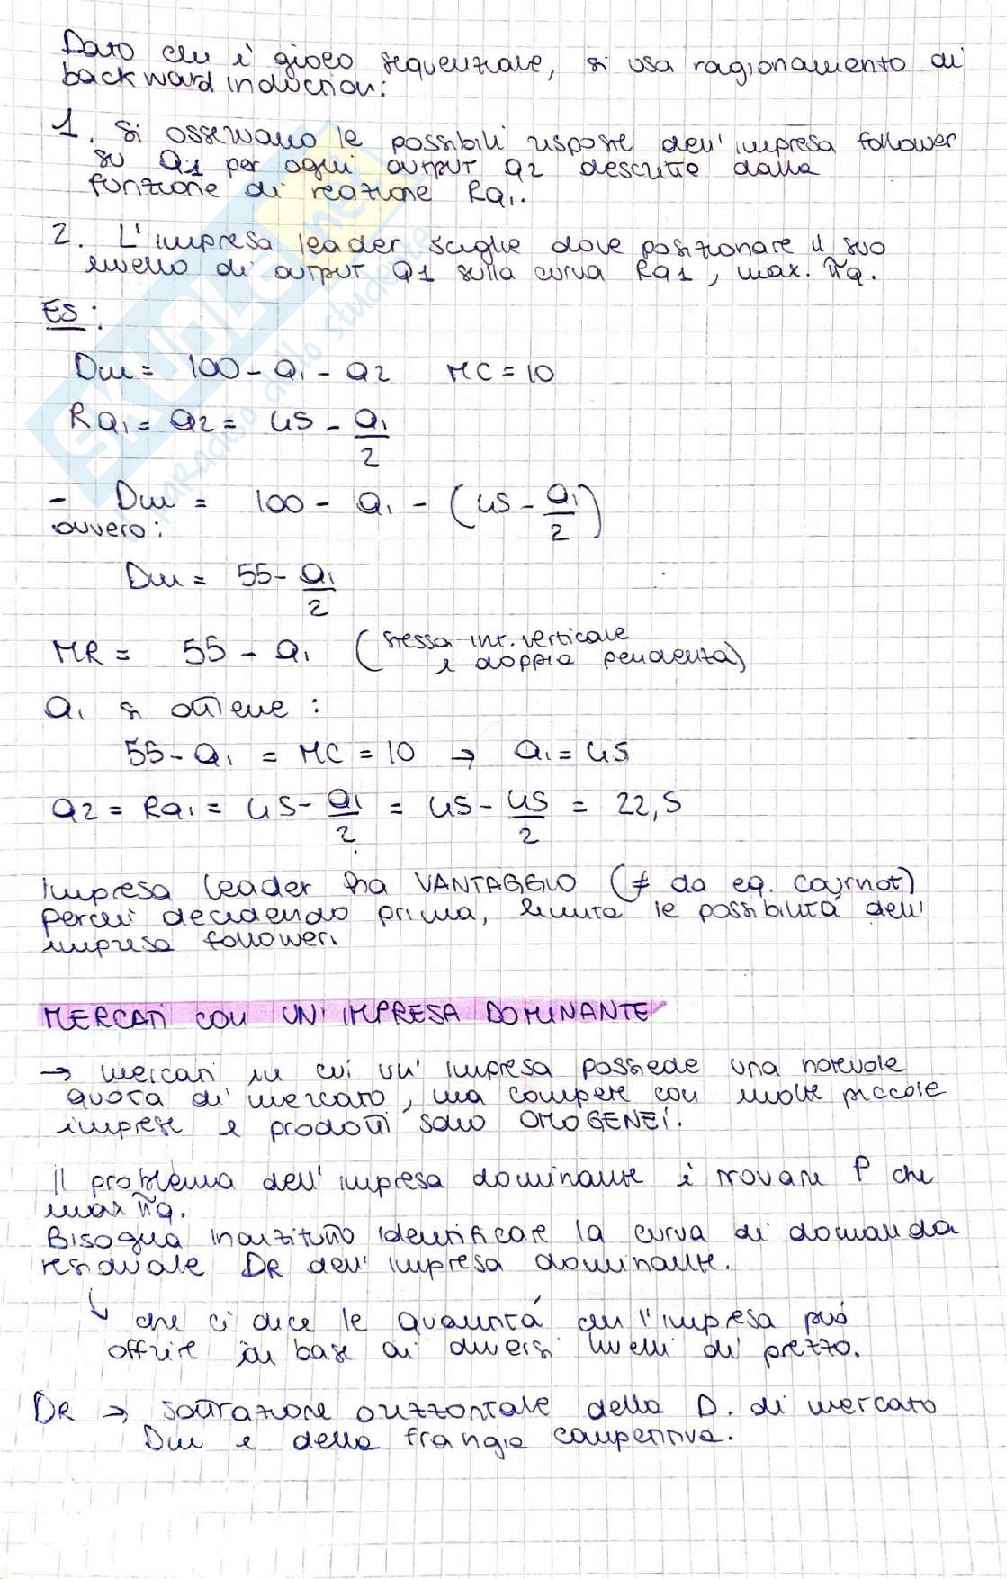 Dato che è gioco sequenziale, si usa ragionamento di
backward induction:
1. Si osservano le possibili risposte dell'impresa follower
su Q1 per ogni output Q2 descritte dalla
funzione di reazione RQ1.
2. L'impresa leader sceglie dove posizionare il suo
livello di output Q1 sulla curva RQ1, max. πq.
ES:
Dm = 100 - Q1 - Q2 MC = 10
RQ1 = Q2 = 45 - Q1/2
- Dm = 100 - Q1 - (45 - Q1/2)
ovvero:
Dm = 55 - Q1/2
MR = 55 - Q1 (stessa int. verticale
e doppia pendenza)
Q1 si ottiene:
55 - Q1 = MC = 10 → Q1 = 45
Q2 = RQ1 = 45 - Q1/2 = 45 - 45/2 = 22,5
Impresa leader ha VANTAGGIO (≠ da eq. Cournot)
perché decidendo prima, limita le possibilità dell'
impresa follower.
MERCATI CON UN'IMPRESA DOMINANTE
→ mercati in cui un'impresa possiede una notevole
quota di mercato, ma compete con molte piccole
imprese e prodotti sono OMOGENEI.
Il problema dell'impresa dominante è trovare P che
max πq.
Bisogna innanzitutto identificare la curva di domanda
residuale DR dell'impresa dominante.
↳ che ci dice le quantità che l'impresa può
offrire in base ai diversi livelli di prezzo.
DR → sottrazione orizzontale della D. di mercato
Dm e della frangia competitiva.
SKUOLA.net
il paradiso dello studente